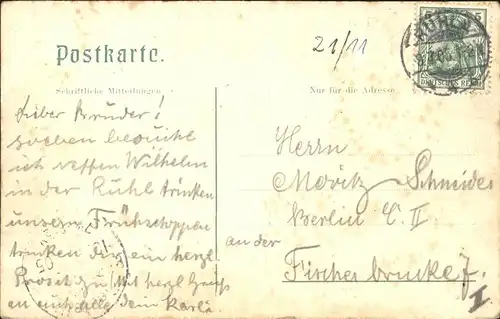 21/11
5 5
DEUTSCHES REICH
Postkarte.
Schriftliche Mitteilungen
Nur für die Adresse
Lieber Bruder!
soeben besuche
ich neffen Wilhelm
in der Ruhl trinken
unsern Frühschoppen
trinken dir ein herzl
Prosit zu! Mit herzl
an euch alle dein Karl
Herrn
Moritz Schneider
Berlin C. II
an der
Fischerbrücke 7.
I